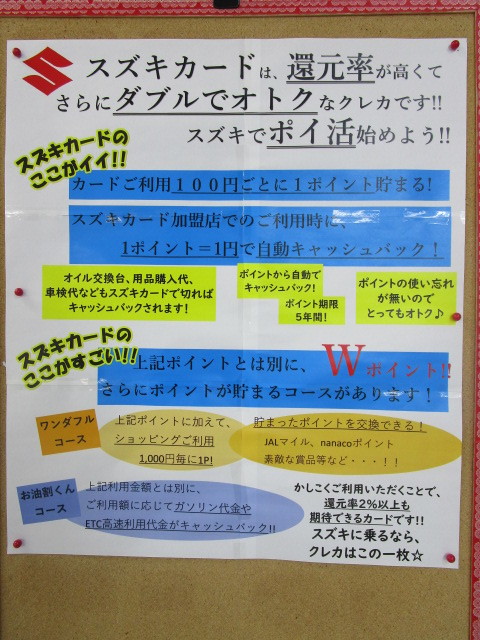 スズキカードは、還元率が高くて
さらにダブルでオトクなクレカです!!
スズキでポイ活始めよう!!
スズキカードの
ここがイイ!!
カードご利用１００円ごとに１ポイント貯まる!
スズキカード加盟店でのご利用時に、
1ポイント＝1円で自動キャッシュバック！
オイル交換台、用品購入代、
車検代などもスズキカードで切れば
キャッシュバックされます!
ポイントから自動で
キャッシュバック!
ポイント期限
5年間!
ポイントの使い忘れ
が無いので
とってもオトク♪
スズキカードの
ここがすごい!!
上記ポイントとは別に、Wポイント!!
さらにポイントが貯まるコースがあります！
ワンダフル
コース
上記ポイントに加えて、
ショッピングご利用
1,000円毎に1P!
貯まったポイントを交換できる！
JALマイル、nanacoポイント
素敵な賞品等など・・・！！
お油割くん
コース
上記利用金額とは別に、
ご利用額に応じてガソリン代金や
ETC高速利用代金がキャッシュバック!!
かしこくご利用いただくことで、
還元率2%以上も
期待できるカードです!!
スズキに乗るなら、
クレカはこの一枚☆